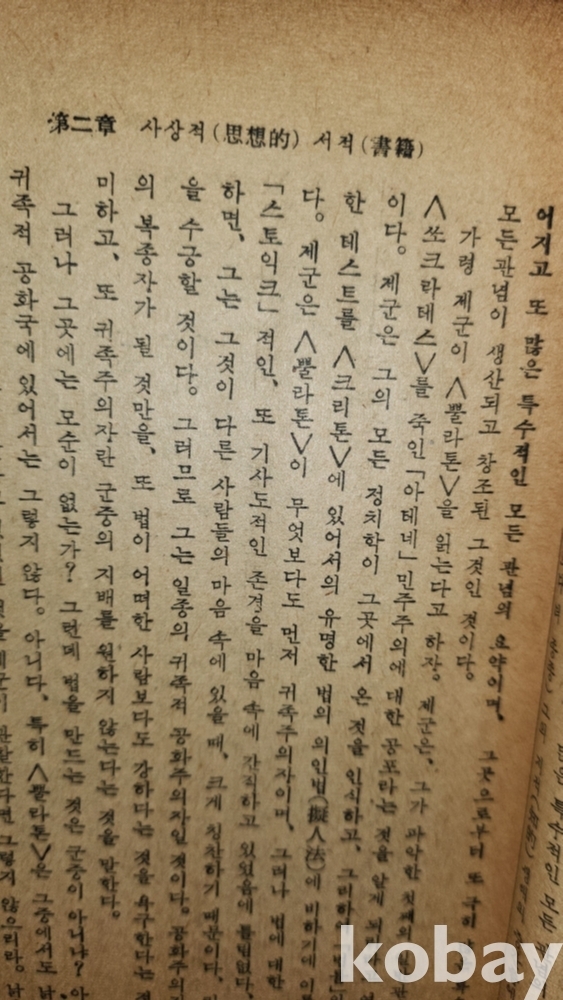 第二章 사상적(思想的) 서적(書籍)
어지고 또 많은 특수적인 모든 관념의 요약이며, 그곳으로부터 또
모든관념이 생산되고 창조된 그것인 것이다.
가령 제군이 <뿔라톤>을 읽는다고 하자. 제군은, 그가 파악한 첫째의
<쏘크라테스>를 죽인「아테네」민주주의에 대한 공포라는 것을 알게
이다. 제군은 그의 모든 정치학이 그곳에서 온 것을 인식하고,
한 테스트를 <크리톤>에 있어서의 유명한 법의 의인법(擬人法)에 비하기에
다. 제군은 <뿔라톤>이 무엇보다도 먼저 귀족주의자이며, 그러나 법에 대한
「스토익크」적인, 또 기사도적인 존경을 마음 속에 간직하고 있었음에 틀림없다.
하면, 그는 그것이 다른 사람들의 마음 속에 있을 때, 크게 칭찬하기 때문이다.
을 수긍할 것이다. 그러므로 그는 일종의 귀족적 공화주의자일 것이다. 공화주의
의 복종자가 될 것만을, 또 법이 어떠한 사람보다도 강하다는 것을 욕구한다는
미하고, 또 귀족주의자란 군중의 지배를 원하지 않는다는 것을 말한다.
그러나 그곳에는 모순이 없는가? 그런데 법을 만드는 것은 군중이 아니냐?
귀족적 공화국에 있어서는 그렇지 않다. 아니다, 특히 <뿔라톤>은 그중에서도
그렇지 않으리라.
kobay